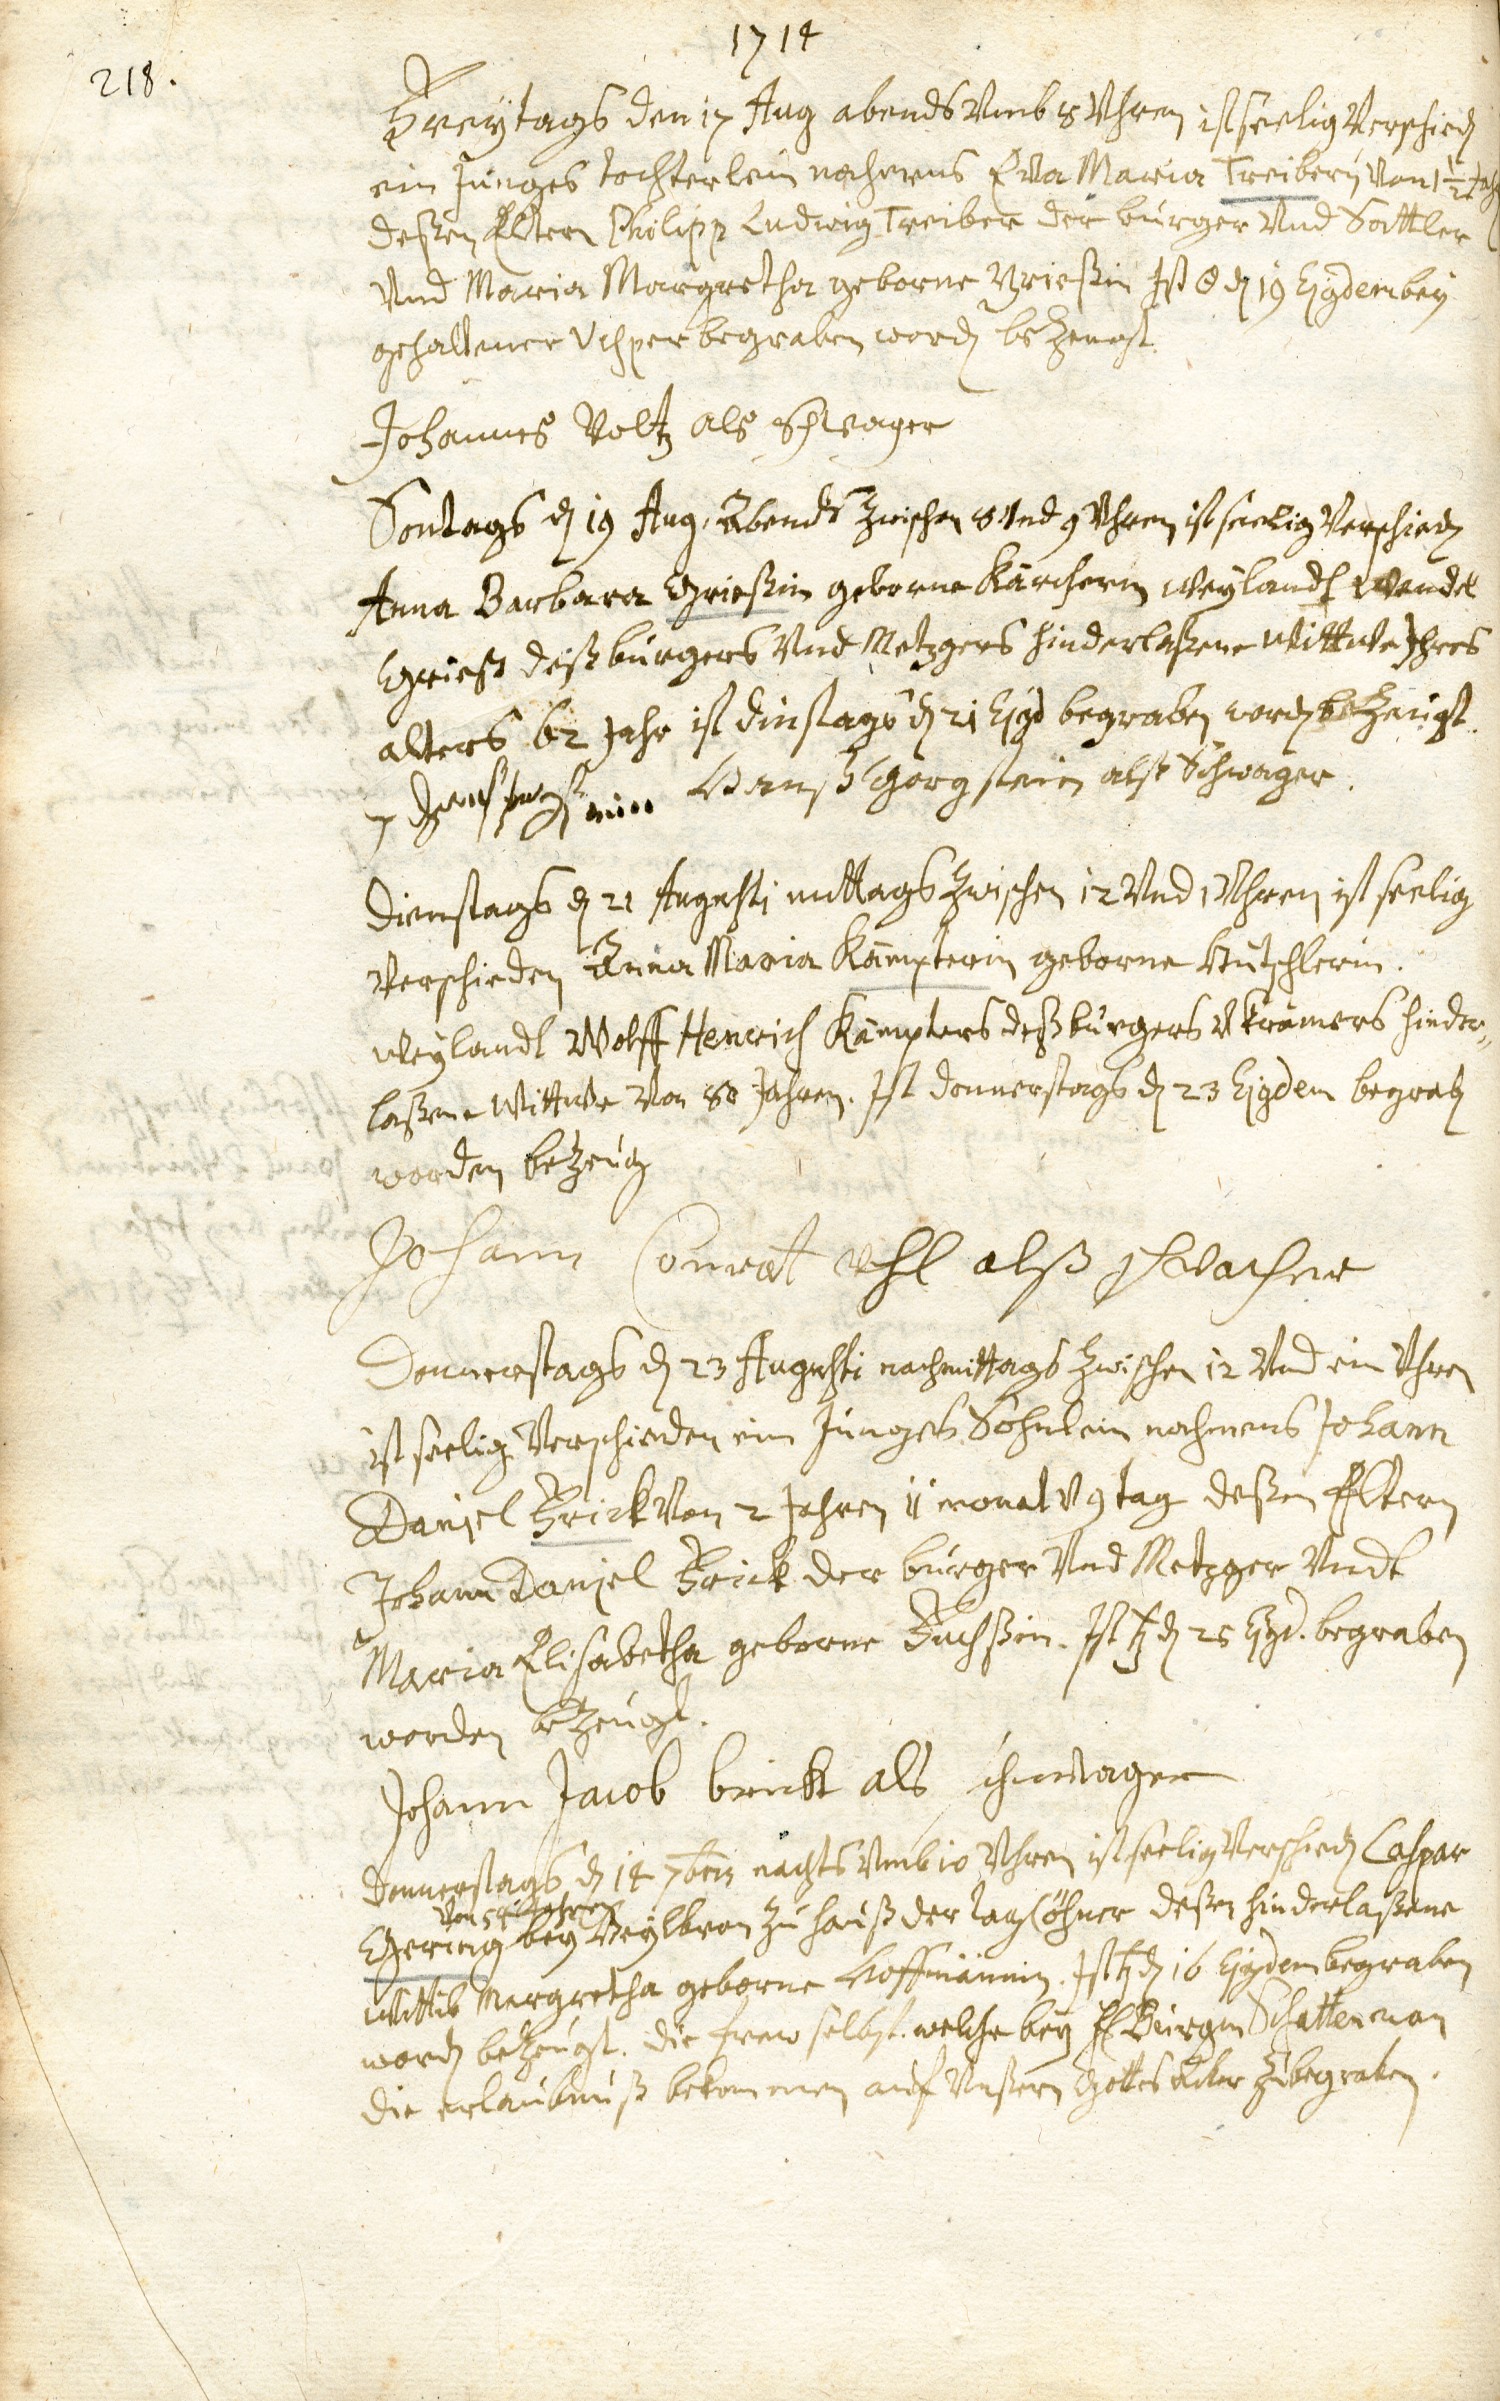 1714
218.
Freytags den 17 Aug abends Vmb 8 Vhren ist seelig Verschied
ein Junges tochterlein nahmens Eva Maria Treiberin Von 1 1/2 Jahr
deßen Eltern Philipp Ludwig Treiber der burger Vnd Sattler
Vnd Maria Margretha geborne Grießin Ist ☉ d 19 Ejgdem bey
gehaltener Vesper begraben word bezeugt
Johannes Voltz als Schwager
Sontags d 19 Aug. Abends Zwischen 8 Vnd 9 Vhren ist seelig Verschied
Anna Barbara Grießin geborne Kärcherin Weylandt Wendel
Grieß deß burgers Vnd Metzgers hinderlaßene Wittwe Ihres
alters 62 Jahr ist dinstags d 21 Ejgd begraben word bezeugt
Hanß Görg stein alß Schwager.
Dienstags d 21 Augusti mittags Zwischen 12 Vnd 1 Vhren ist seelig
Verschieden Anna Maria Kämpterin geborne Kutschlerin.
Weylandt Wolff Henrich Kämpters deß burgers V krämers hinder„
laßene Wittwe Von 80 Jahren. Ist donnerstags d 23 Ejgdem begrab
worden bezeug
Johann Conrat Vhl alß schwacher
Donnerstags d 23 Augusti nachmittags Zwischen 12 Vnd ein Vhren
ist seelig Verschieden ein Junges Söhnlein nahmens Johann
Daniel Brick Von 2 Jahren 11 monat V 9 tag deßen Eltern
Johann Daniel Brick der burger Vnd Metzger Vndt
Maria Elisabetha geborne Fuchßin. Ist d 25 Ejgd. begraben
worden bezeugt.
Johann Jacob brick als schwager
Donnerstags d 14 7bris nachts Vmb 10 Vhren ist seelig Verschied Caspar
Von 54 Jahren
Gering bey Heylbron Zu hauß der taglöhner deßen hinderlaßene
Wittib Margretha geborne Hoffmännin. Ist d 16 Ejgdem begraben
word bezeugt. die frew selbst. welche bey H Burgm Schatteman
die erlaubnuß bekommen auf Vnßern Gottes Acker Zubegraben.